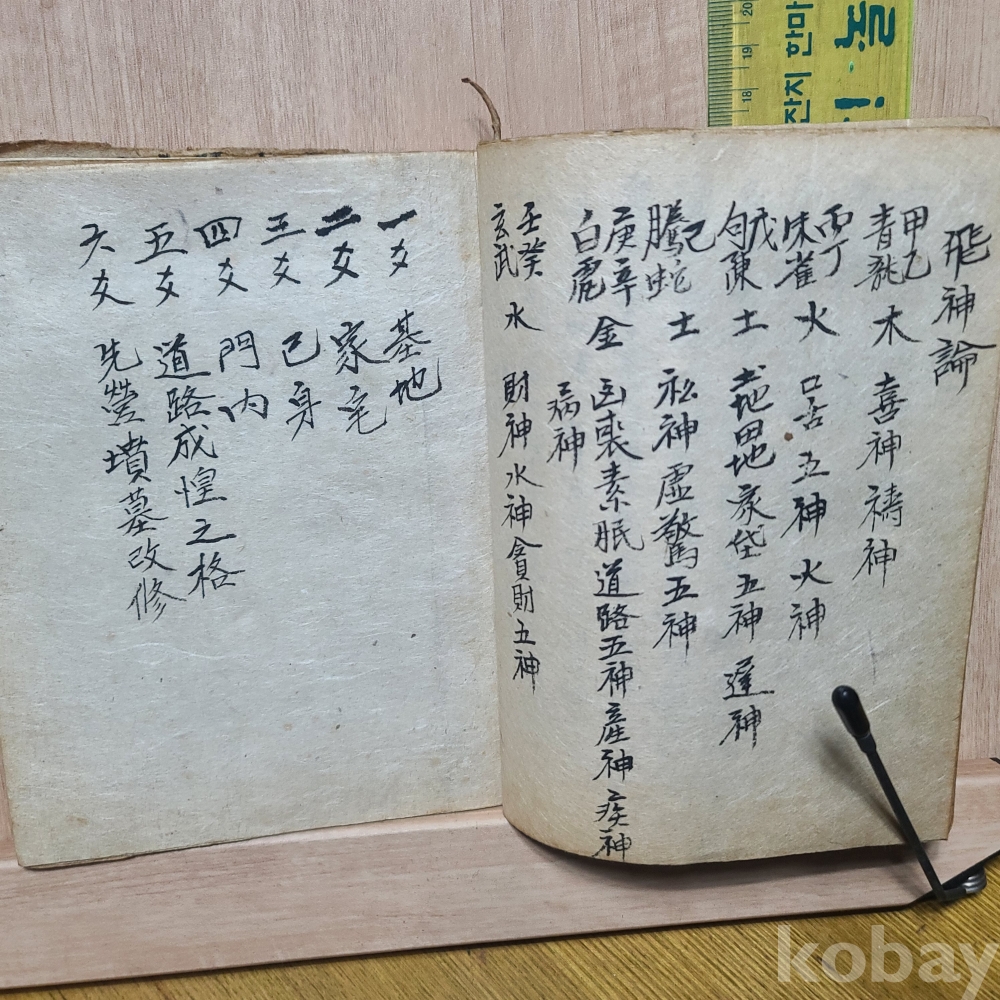 飛神論
甲乙 青龍 木 喜神 禱神
丙丁 朱雀 火 口舌 五神 火神
戊 句陳 土 地 田地 家垈 五神 遅神
己 騰蛇 土 神虛驚五神
庚辛 白虎 金 素眠道路五神産神疾神
病神
壬癸 玄武 水 財神水神貪財五神
一爻 基地
二爻 家宅
三爻 己身
四爻 門内
五爻 道路成惶之格
六爻 先塋墳墓改修
20
19
18
잔지 한마
! 놀
kobay